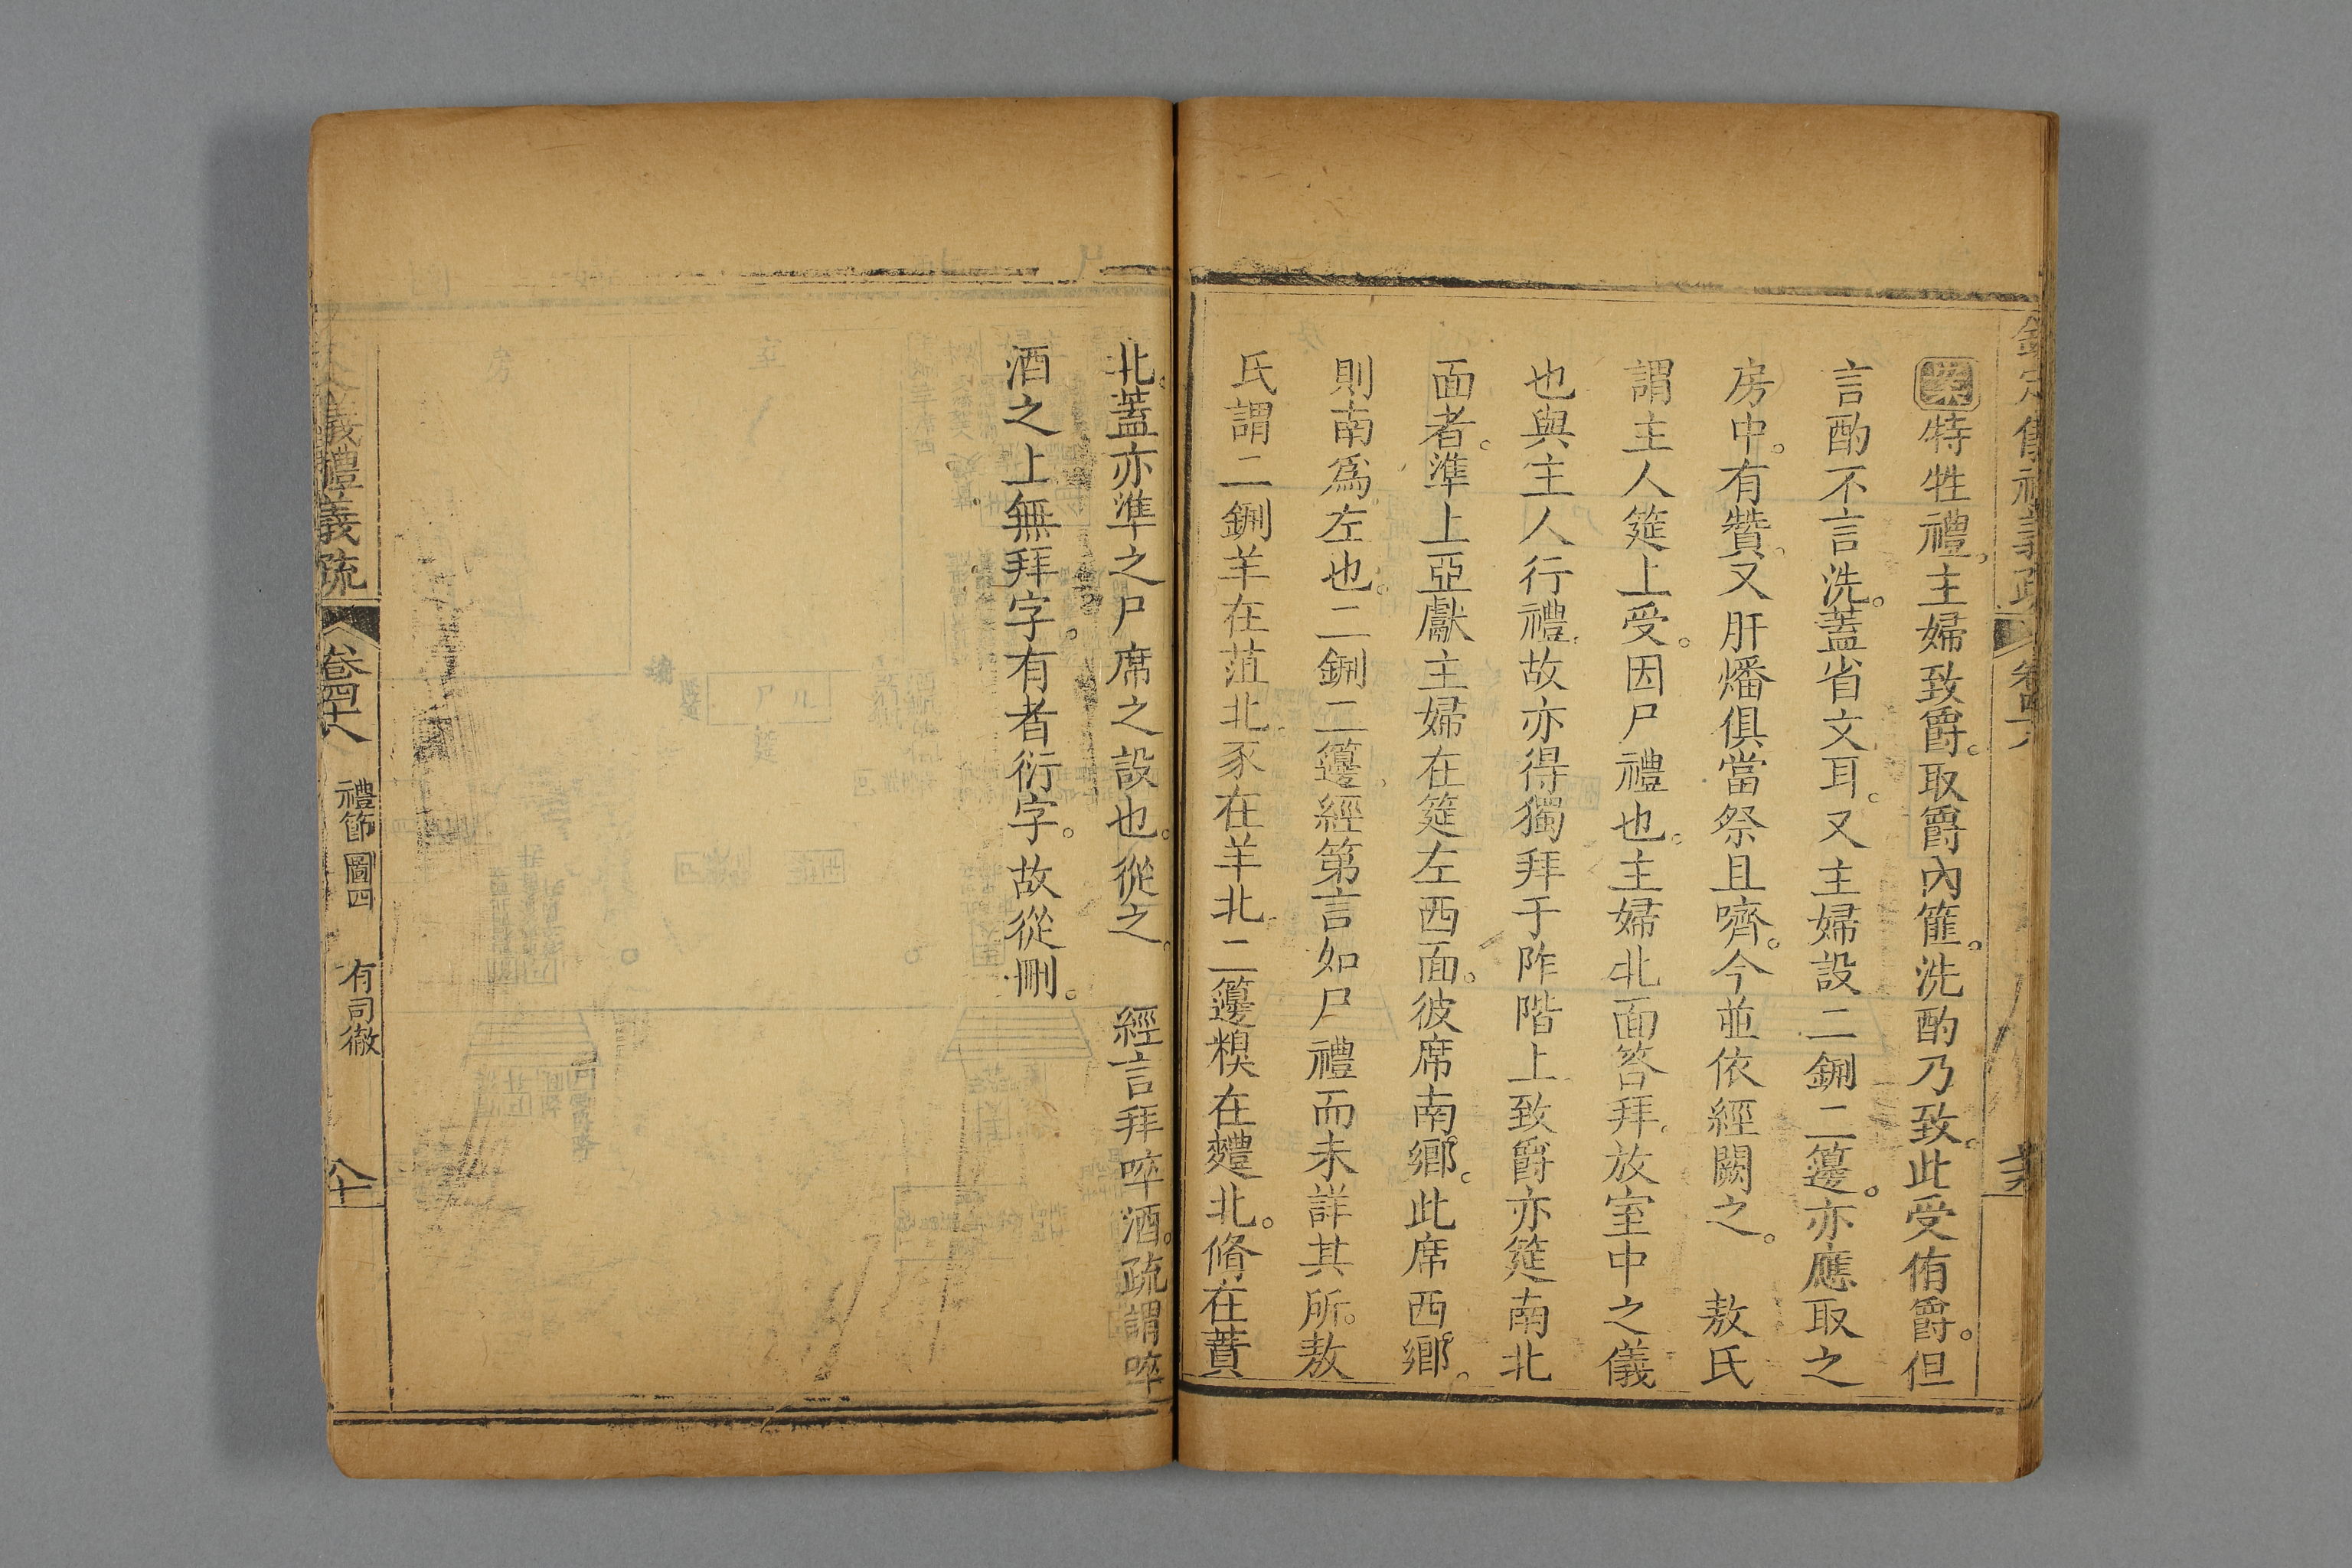 欽定儀禮義疏 卷四十八
案特牲禮主婦致爵。取爵內篚。洗酌乃致。此受侑爵。但
言酌不言洗。蓋省文耳。又主婦設二鉶二籩。亦應取之
房中。有贊。又肝燔俱當祭且嚌。今並依經闕之。 敖氏
謂主人筵上受。因尸禮也。主婦北面答拜。放室中之儀
也與主人行禮。故亦得獨拜于阼階上致爵亦筵南北
面者。準上亞獻主婦在筵左西面。彼席南鄉。此席西鄉。
則南爲左也。二鉶二籩。經第言如尸禮而未詳其所。敖
氏謂二鉶羊在菹北。豕在羊北。二籩糗在麷北。脩在蕡
北。蓋亦準之尸席之設也。從之。 經言拜啐酒。疏謂啐
酒之上無拜字。有者衍字。故從刪。
儀禮義疏 卷四十八 禮節圖四 有司徹 八十